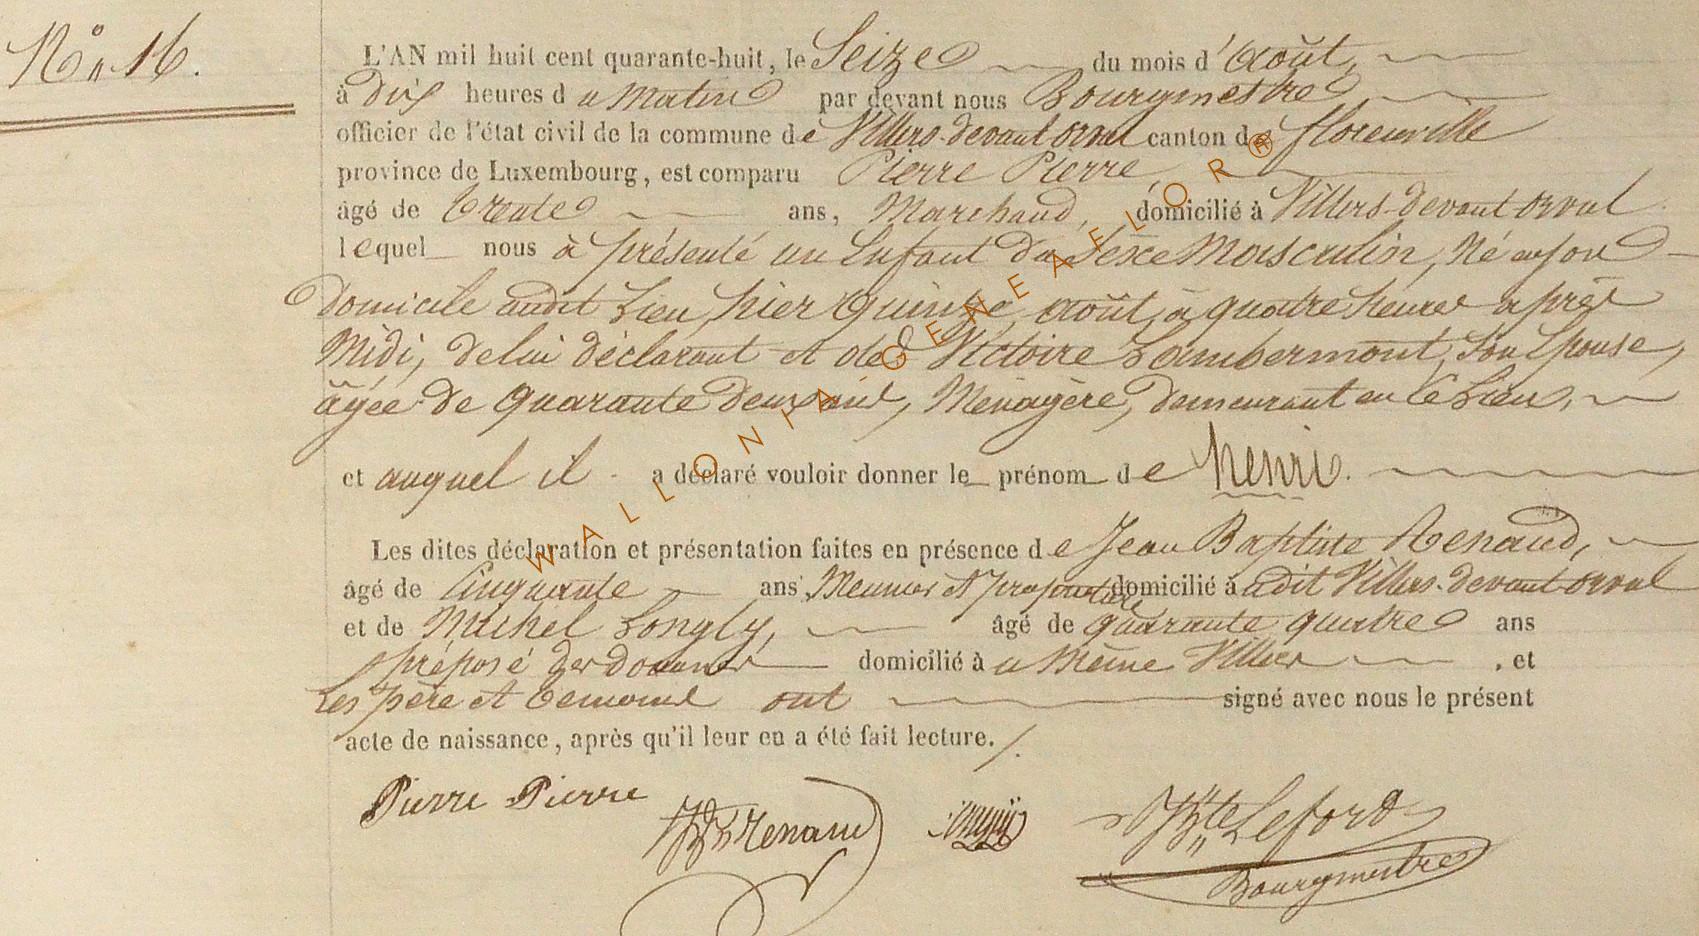 N° 16.
L'AN mil huit cent quarante-huit, le Seize du mois d'Août,
à dix heures du Matin par devant nous Bourgmestre
officier de l'état civil de la commune de Villers-devant orval canton de florenville
province de Luxembourg, est comparu Pierre Pierre,
âgé de trente ans, Marchand, domicilié à Villers-devant orval
lequel nous à présenté un Enfant du Sexe Masculin, Né en son
domicile audit Lieu, hier quinze août, à quatre heures après
Midi, de lui déclarant et de Victoire Lambermont, son Epouse,
âgée de quarante deux ans, Ménagère, demeurant en ce Lieu,
et auquel il a déclaré vouloir donner le prénom de henri.
Les dites déclaration et présentation faites en présence de Jean Baptiste Renaud,
âgé de Cinquante ans, Meunier et propriétaire domicilié à udit Villers-devant orval
et de Michel Longly, âgé de quarante quatre ans
préposé des douanes domicilié à u Même Villers, et
Les père et temoins ont signé avec nous le présent
acte de naissance, après qu'il leur en a été fait lecture./.
Pierre Pierre
Renaud
Bte Lefort
Bourgmestre
WALLONIA-GENEAFLOR®